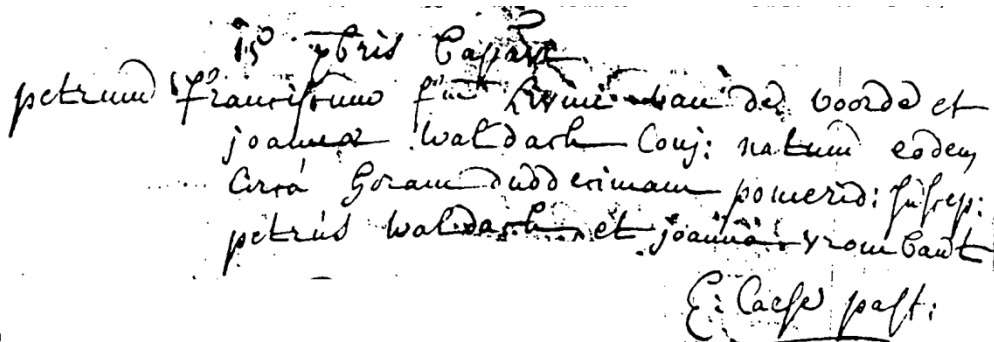 15° 7bris bapst
petrum franciscum f.m Livini van de voorde et
joannæ waldack Conj: natum eodem
circà horam duodecimam pomerid: suscep:
petrus waldack et joanna vrombaut
E: Caese past: